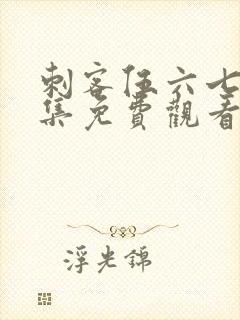 刺客伍六七
集免費觀看
浮光錦